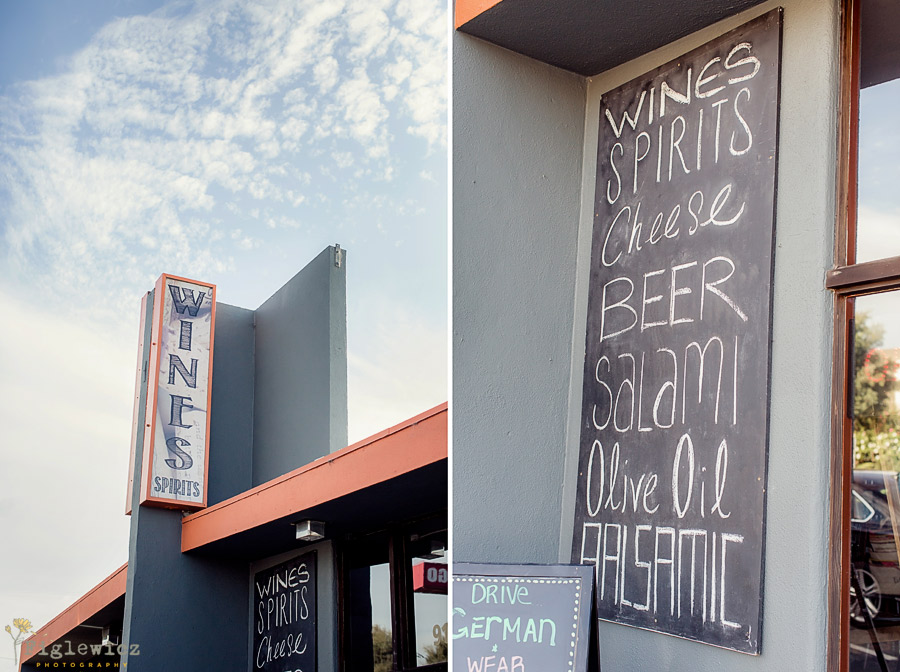 WINES
SPIRITS
WINES
SPIRITS
Cheese
BEER
PHOTOGRAPHY
WINES
SPIRITS
Cheese
BEER
SALAMI
Olive Oil
BALSAMIC
DRIVE
GERMAN
&
WEAR